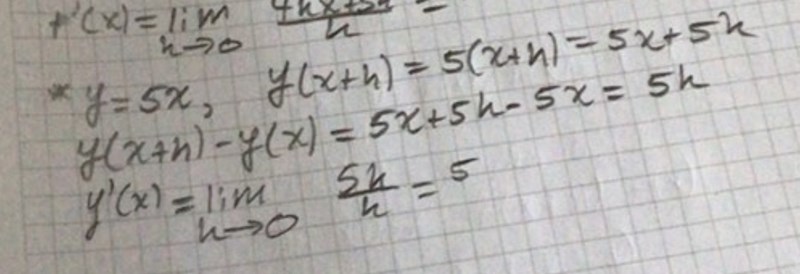 f'(x) = lim h→0 =
* y = 5x, y(x+h) = 5(x+h) = 5x+5h
y(x+h) - y(x) = 5x+5h - 5x = 5h
y'(x) = lim h→0 5h/h = 5